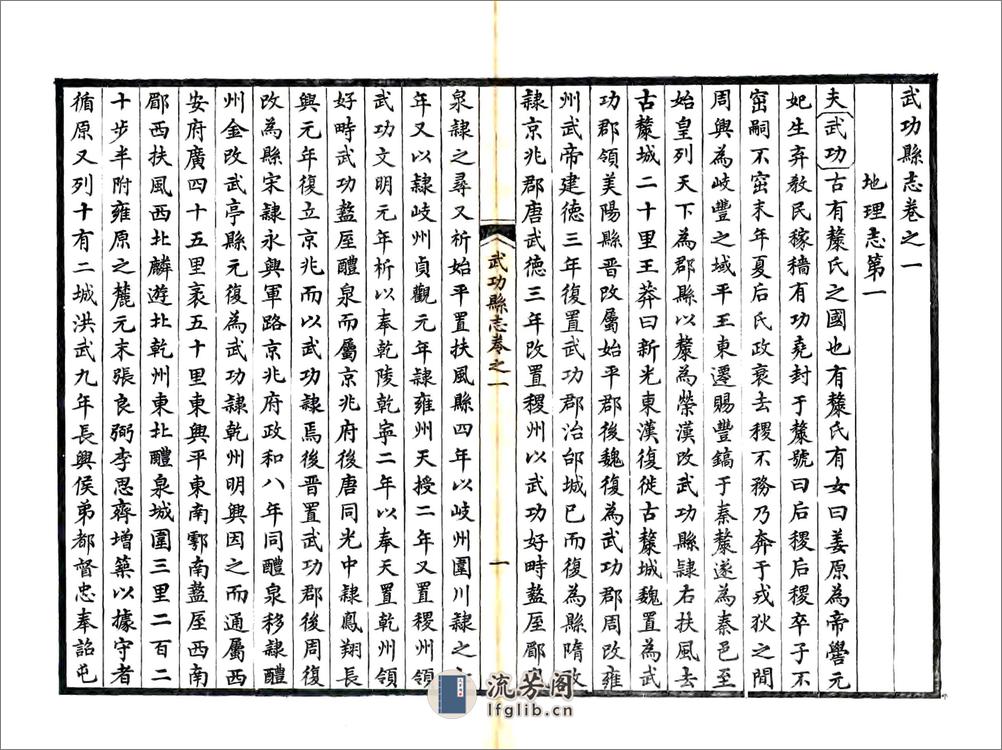 武功縣志卷之一
地理志第一
夫武功古有斄氏之國也有斄氏有女曰姜原為帝嚳元
妃生弃教民稼穡有功堯封于斄號曰后稷后稷卒子不
窋嗣不窋末年夏后氏政衰去稷不務乃奔于戎狄之間
周興為岐豐之域平王東遷賜豐鎬于秦斄遂為秦邑至
始皇列天下為郡縣以斄為漦漢改武功縣隷右扶風去
古斄城二十里王莽曰新光東漢復徙古斄城魏置為武
功郡領美陽縣晉改屬始平郡後魏復為武功郡周改雍
州武帝建德三年復置武功郡治邰城已而復為縣隋改
隷京兆郡唐武德三年改置稷州以武功好畤盩厔郿
武功縣志卷之一
一
泉隷之尋又析始平置扶風縣四年以岐州圍川隷之
年又以隷岐州貞觀元年隷雍州天授二年又置稷州領
武功文明元年析以奉乾陵乾寧二年以奉天置乾州領
好畤武功盩厔醴泉而屬京兆府後唐同光中隷鳳翔長
興元年復立京兆而以武功隷焉後晉置武功郡後周復
改為縣宋隷永興軍路京兆府政和八年同醴泉移隷醴
州金改武亭縣元復為武功隷乾州明興因之而通屬西
安府廣四十五里袤五十里東興平東南鄠南盩厔西南
郿西扶風西北麟遊北乾州東北醴泉城圍三里二百二
十步半附雍原之麓元末張良弼李思齊增築以據守者
循原又列十有二城洪武九年長興侯弟都督忠奉詔屯
流芳阁
lfglib.cn